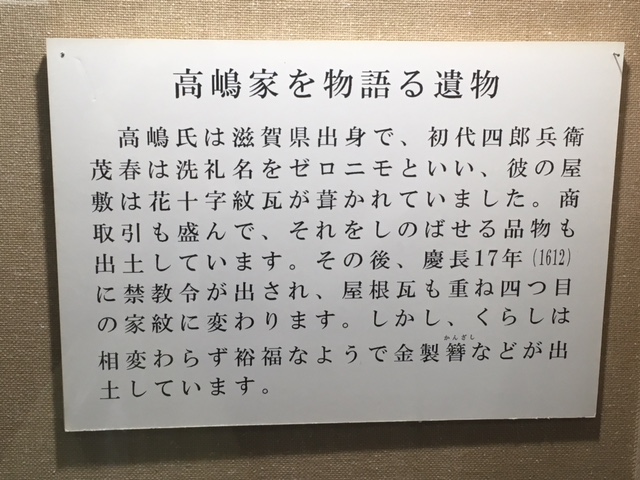 高嶋家を物語る遺物
高嶋氏は滋賀県出身で、初代四郎兵衛
茂春は洗礼名をゼロニモといい、彼の屋
敷は花十字紋瓦が葺かれていました。商
取引も盛んで、それをしのばせる品物も
出土しています。その後、慶長17年(1612)
に禁教令が出され、屋根瓦も重ね四つ目
の家紋に変わります。しかし、くらしは
かんざし
相変わらず裕福なようで金製簪などが出
土しています。